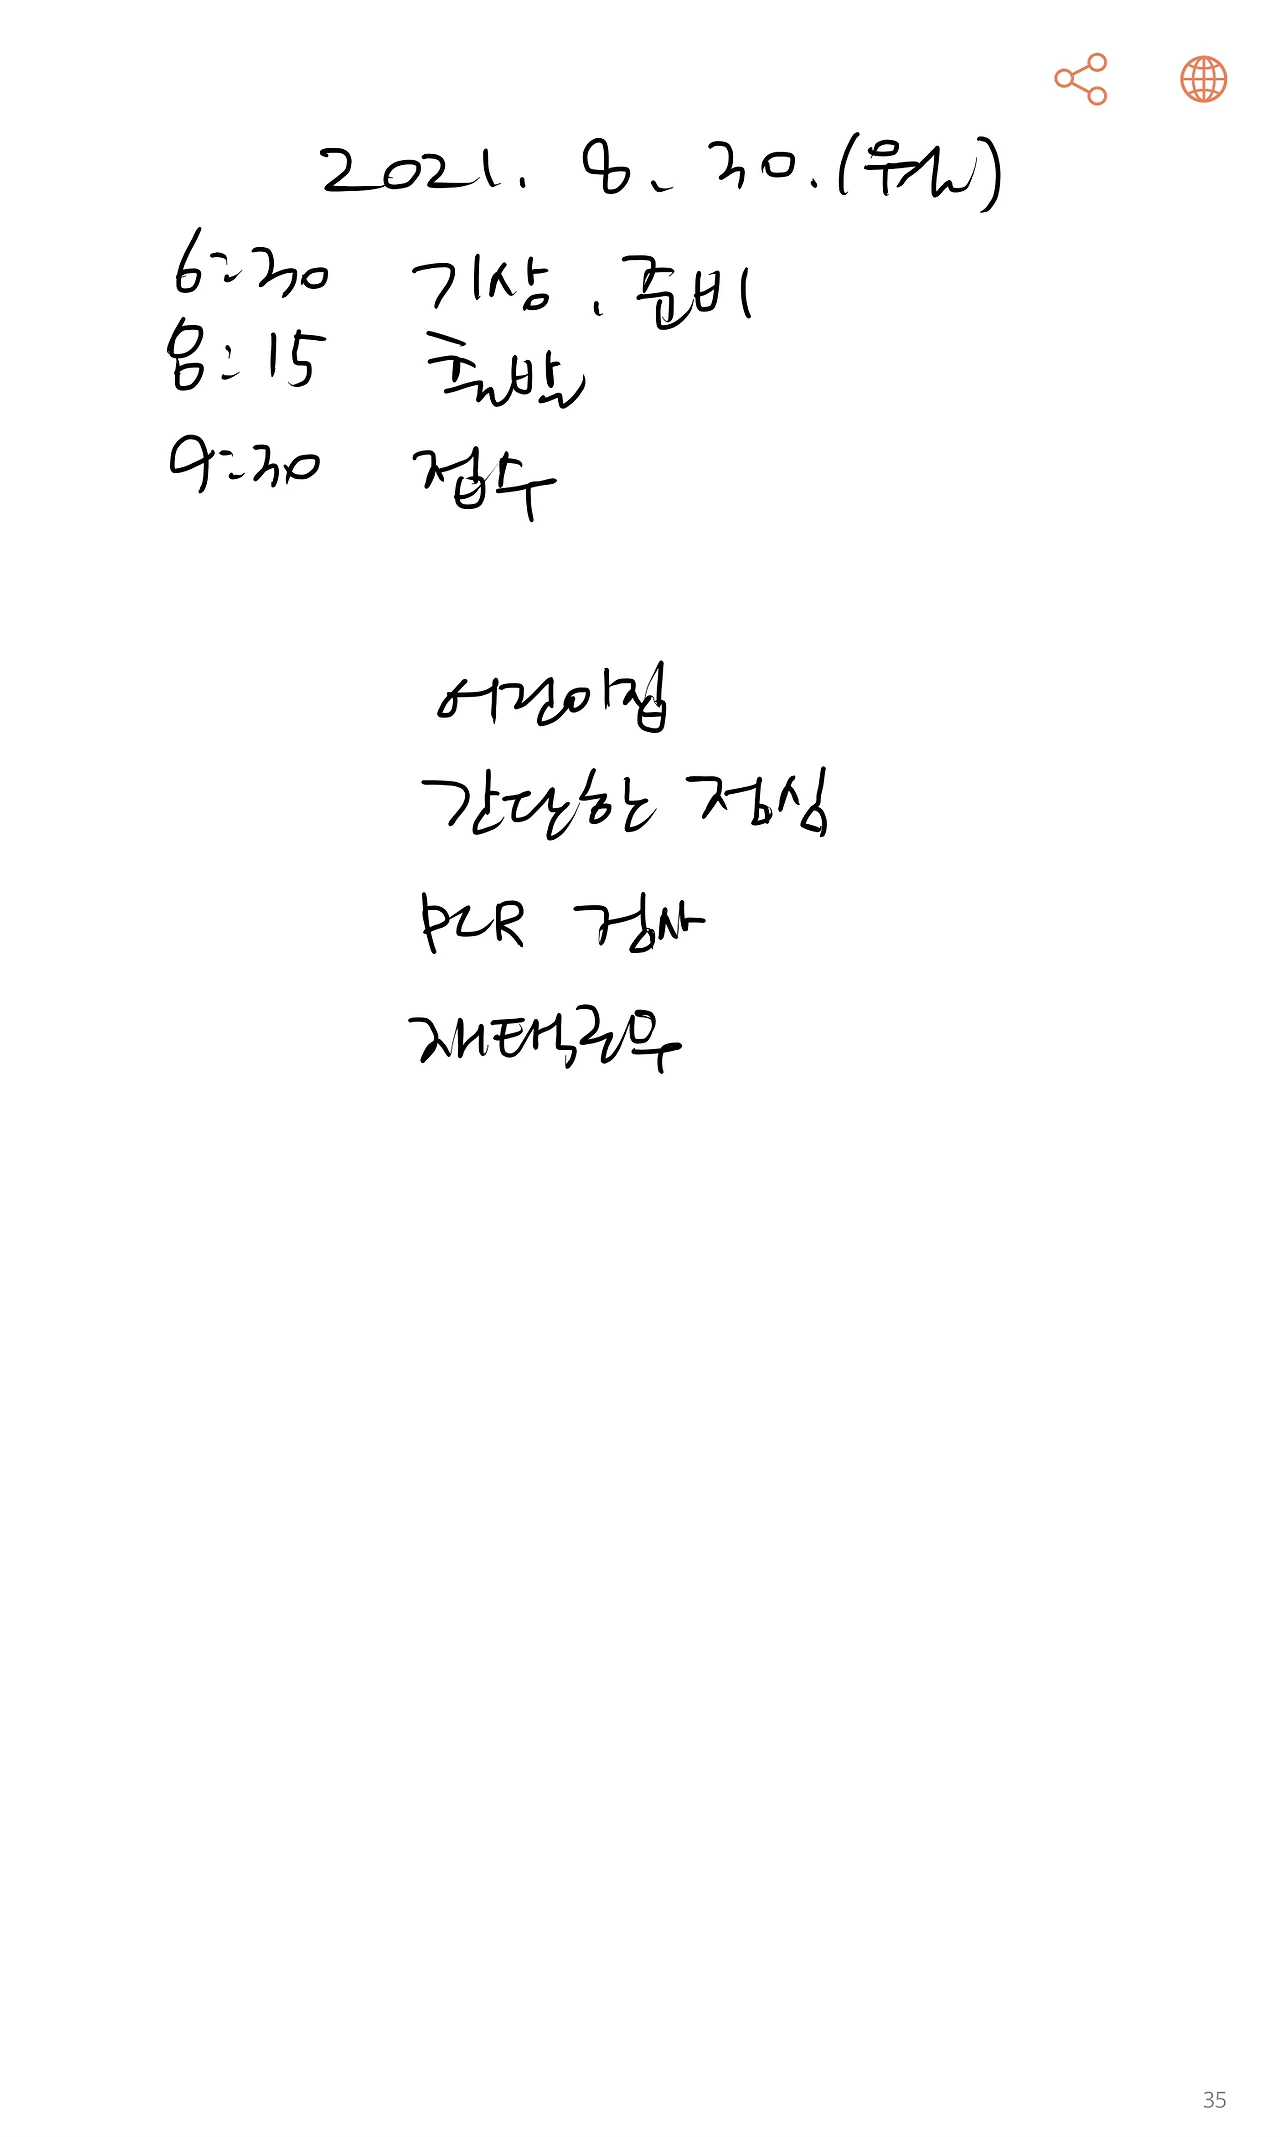 2021. 8. 30. (월)
6:30 기상, 준비
8:15 출발
9:30 접수
어린이집
간단한 점심
PCR 검사
재택근무
35